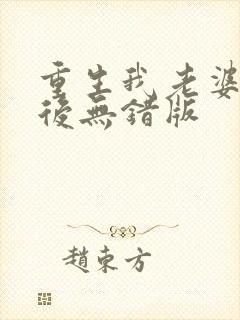 重生我老婆
後無錯版
趙東方